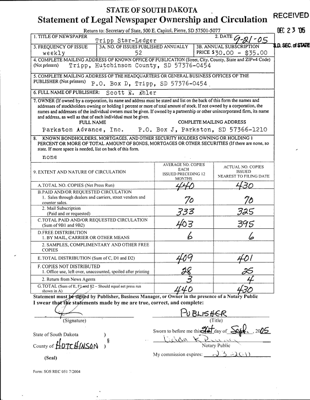 STATE OF SOUTH DAKOTA
Statement of Legal Newspaper Ownership and Circulation
RECEIVED
Return to: Secretary of State, 500 E. Capitol, Pierre, SD 57501-5077
DEC 23 '05
S.D. SEC. of STATE
1. TITLE OF NEWSPAPER
Tripp Star-Ledger
2. DATE
9-21-05
3. FREQUENCY OF ISSUE
weekly
3A. NO. OF ISSUES PUBLISHED ANNUALLY
52
3B. ANNUAL SUBSCRIPTION
PRICE $30.00 - $35.00
4. COMPLETE MAILING ADDRESS OF KNOWN OFFICE OF PUBLICATION (Street, City, County, State and ZIP+4 Code)
Tripp, Hutchinson County, SD 57376-0454
5. COMPLETE MAILING ADDRESS OF THE HEADQUARTERS OR GENERAL BUSINESS OFFICES OF THE
PUBLISHER P.O. Box D, Tripp, SD 57376-0454
6. FULL NAME OF PUBLISHER: Scott E. Ehler
7. OWNER (If owned by a corporation, its name and address must be stated and list on the back of this form the names and
addresses of stockholders owning or holding 1 percent or more of total amount of stock. If not owned by a corporation, the
names and addresses of the individual owners must be given. If owned by a partnership or other unincorporated firm, its name
and address, as well as that of each individual must be given.)
FULL NAME
COMPLETE MAILING ADDRESS
Parkston Advance, Inc.
P.O. Box J, Parkston, SD 57366-1210
8. KNOWN BONDHOLDERS, MORTGAGES, AND OTHER SECURITY OWNERS OWNING OR HOLDING 1
PERCENT OR MORE OF TOTAL AMOUNT OF BONDS, MORTGAGES OR OTHER SECURITIES (If there are none, so
state. If more space is needed, list on back of this form.
none
9. EXTENT AND NATURE OF CIRCULATION
AVERAGE NO. COPIES
EACH
ISSUED PRECEDING 12
MONTHS
ACTUAL NO. COPIES
ISSUED
NEAREST TO FILING DATE
A. TOTAL NO. COPIES (Net Press Run)
440
430
B. PAID AND/OR REQUESTED CIRCULATION
1. Sales through dealers and carriers, street vendors and
counter sales.
70
70
2. Mail Subscription
(Paid and or requested)
333
325
C. TOTAL PAID AND/OR REQUESTED CIRCULATION
(Sum of 9B1 and 9B2)
403
395
D. FREE DISTRIBUTION
1. BY MAIL, CARRIER OR OTHER MEANS
6
6
2. SAMPLES, COMPLIMENTARY AND OTHER FREE
COPIES
E. TOTAL DISTRIBUTION (Sum of C, D1 and D2)
409
401
F. COPIES NOT DISTRIBUTED
1. Office use, left over, unaccounted, spoiled after printing
28
25
2. Return from News Agents
3
4
G. TOTAL (Sum of E, F1 and F2 - Should equal net press run
shown in A)
440
430
Statement must be signed by Publisher, Business Manager, or Owner in the presence of a Notary Public
I swear that the statements made by me are true, correct, and complete:
PUBLISHER
(Signature)
(Title)
State of South Dakota )
Sworn to before me this 21st day of Sept. 05
County of HUTCHINSON )
(Seal)
Notary Public
My commission expires:
Form: SOS REC 051 7/2004